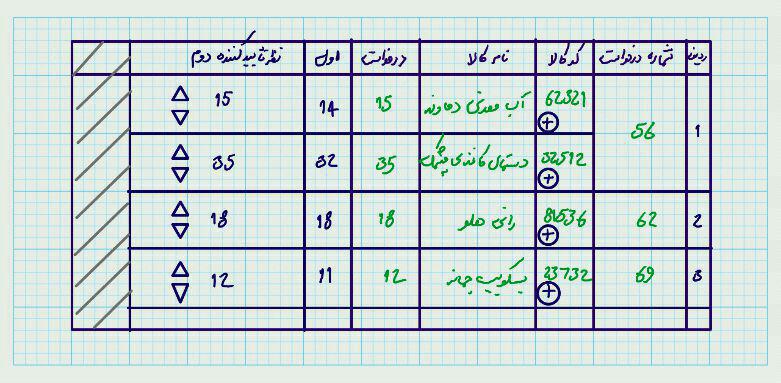 ردیف شماره درخواست کد کالا نام کالا درخواست اول نظر تایید کننده دوم
1 56 62321 آب معدنی دماوند 15 14 15
32512 دستمال کاغذی چشمک 35 32 35
2 62 81536 رانی هلو 18 18 18
3 69 23732 بیسکوییت جهانز 12 11 12